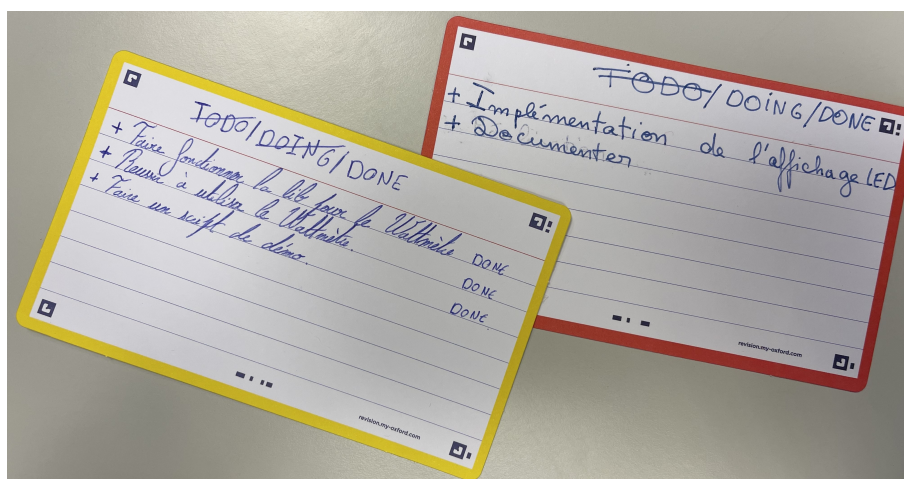 TODO/DOING/DONE
+ Faire fonctionner la lib pour le Wattmètre DONE
+ Reussir à utiliser le Wattmètre. DONE
+ Faire un script de démo. DONE.
revision.my-oxford.com
TODO/DOING/DONE
+ Implémentation de l'affichage LED
+ Documenter
revision.my-oxford.com